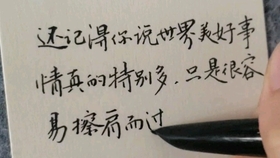 还记得你说世界美好事
情真的特别多.只是很容
易擦肩而过